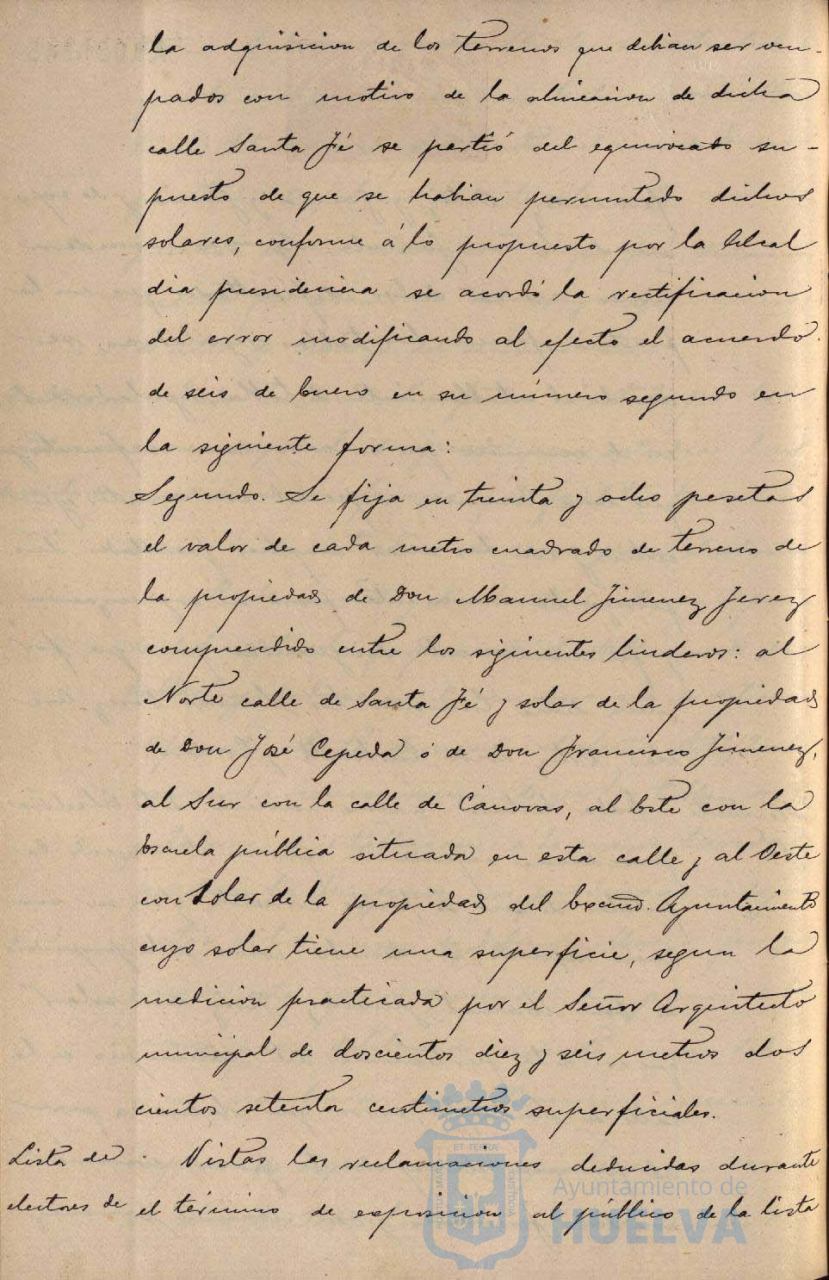 la adquisicion de los terrenos que debian ser ocu-
pados con motivo de la alineacion de dicha
calle Santa Fé se partió del equivocado su-
puesto de que se habian permutado dichos
solares, conforme á lo propuesto por la Alcal
dia presidencia se acordó la rectificacion
del error modificando al efecto el acuerdo
de seis de Enero en su número segundo en
la siguiente forma:
Segundo. Se fija en treinta y ocho pesetas
el valor de cada metro cuadrado de terreno de
la propiedad de Don Manuel Jimenez Jerez
comprendido entre los siguientes linderos: al
Norte calle de Santa Fé y solar de la propiedad
de Don José Cepeda ó de Don Francisco Jimenez,
al Sur con la calle de Cánovas, al Este con la
Escuela pública situada en esta calle y al Oeste
con Solar de la propiedad del Excmo. Ayuntamiento
cuyo solar tiene una superficie, segun la
medicion practicada por el Señor Arquitecto
municipal de doscientos diez y seis metros dos
cientos setenta centimetros superficiales.
Lista de . Vistas las reclamaciones deducidas durante
electores de el término de exposicion al público de la lista
Ayuntamiento de
HUELVA